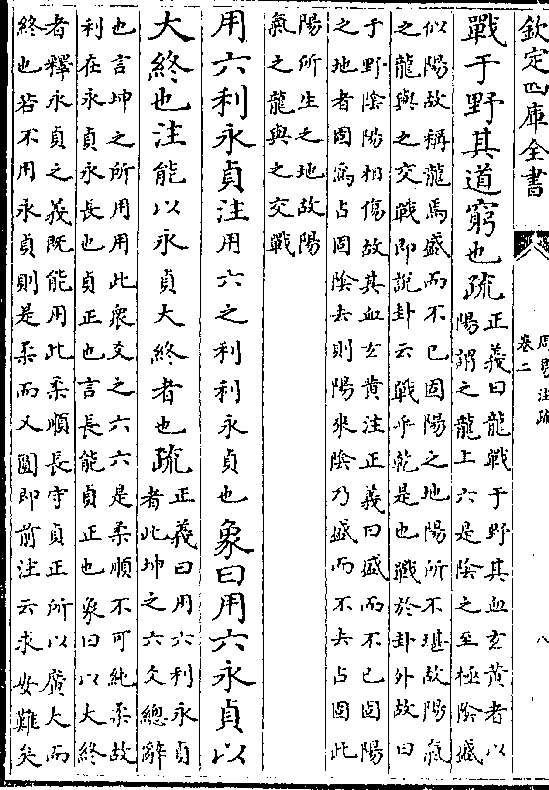 欽定四庫全書
周易注疏
卷二
八
戰于野其道窮也疏
正義曰龍戰于野其血玄黄者以
陽謂之龍上六是陰之至極陰盛
似陽故稱龍焉盛而不已固陽之地陽所不堪故陽氣
之龍與之交戰即說卦云戰乎乾是也戰於卦外故曰
于野陰陽相傷故其血玄黄注正義曰盛而不已固陽
之地者固為占固陰去則陽來陰乃盛而不去占固此
陽所生之地故陽
氣之龍與之交戰
用六利永貞注用六之利利永貞也象曰用六永貞以
大終也注能以永貞大終者也疏
正義曰用六利永貞
者此坤之六爻總辭
也言坤之所用用此衆爻之六六是柔順不可純柔故
利在永貞永長也貞正也言長能貞正也象曰以大終
者釋永貞之義既能用此柔順長守貞正所以廣大而
終也若不用永貞則是柔而又圓即前注云求安難矣